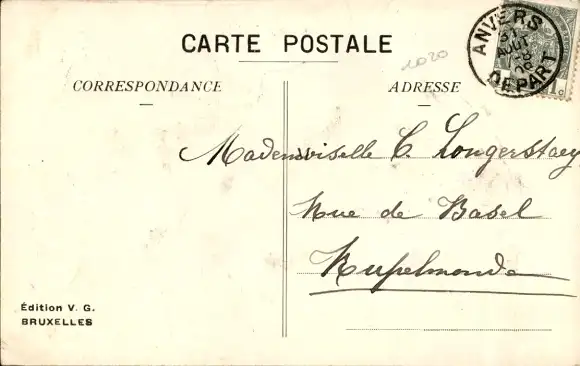 CARTE POSTALE
1020
ANVERS
AOUT
DEPART
1 c
CORRESPONDANCE
ADRESSE
Mademoiselle C. Longerstaey
Rue de Basel
Rupelmonde
Édition V. G.
BRUXELLES